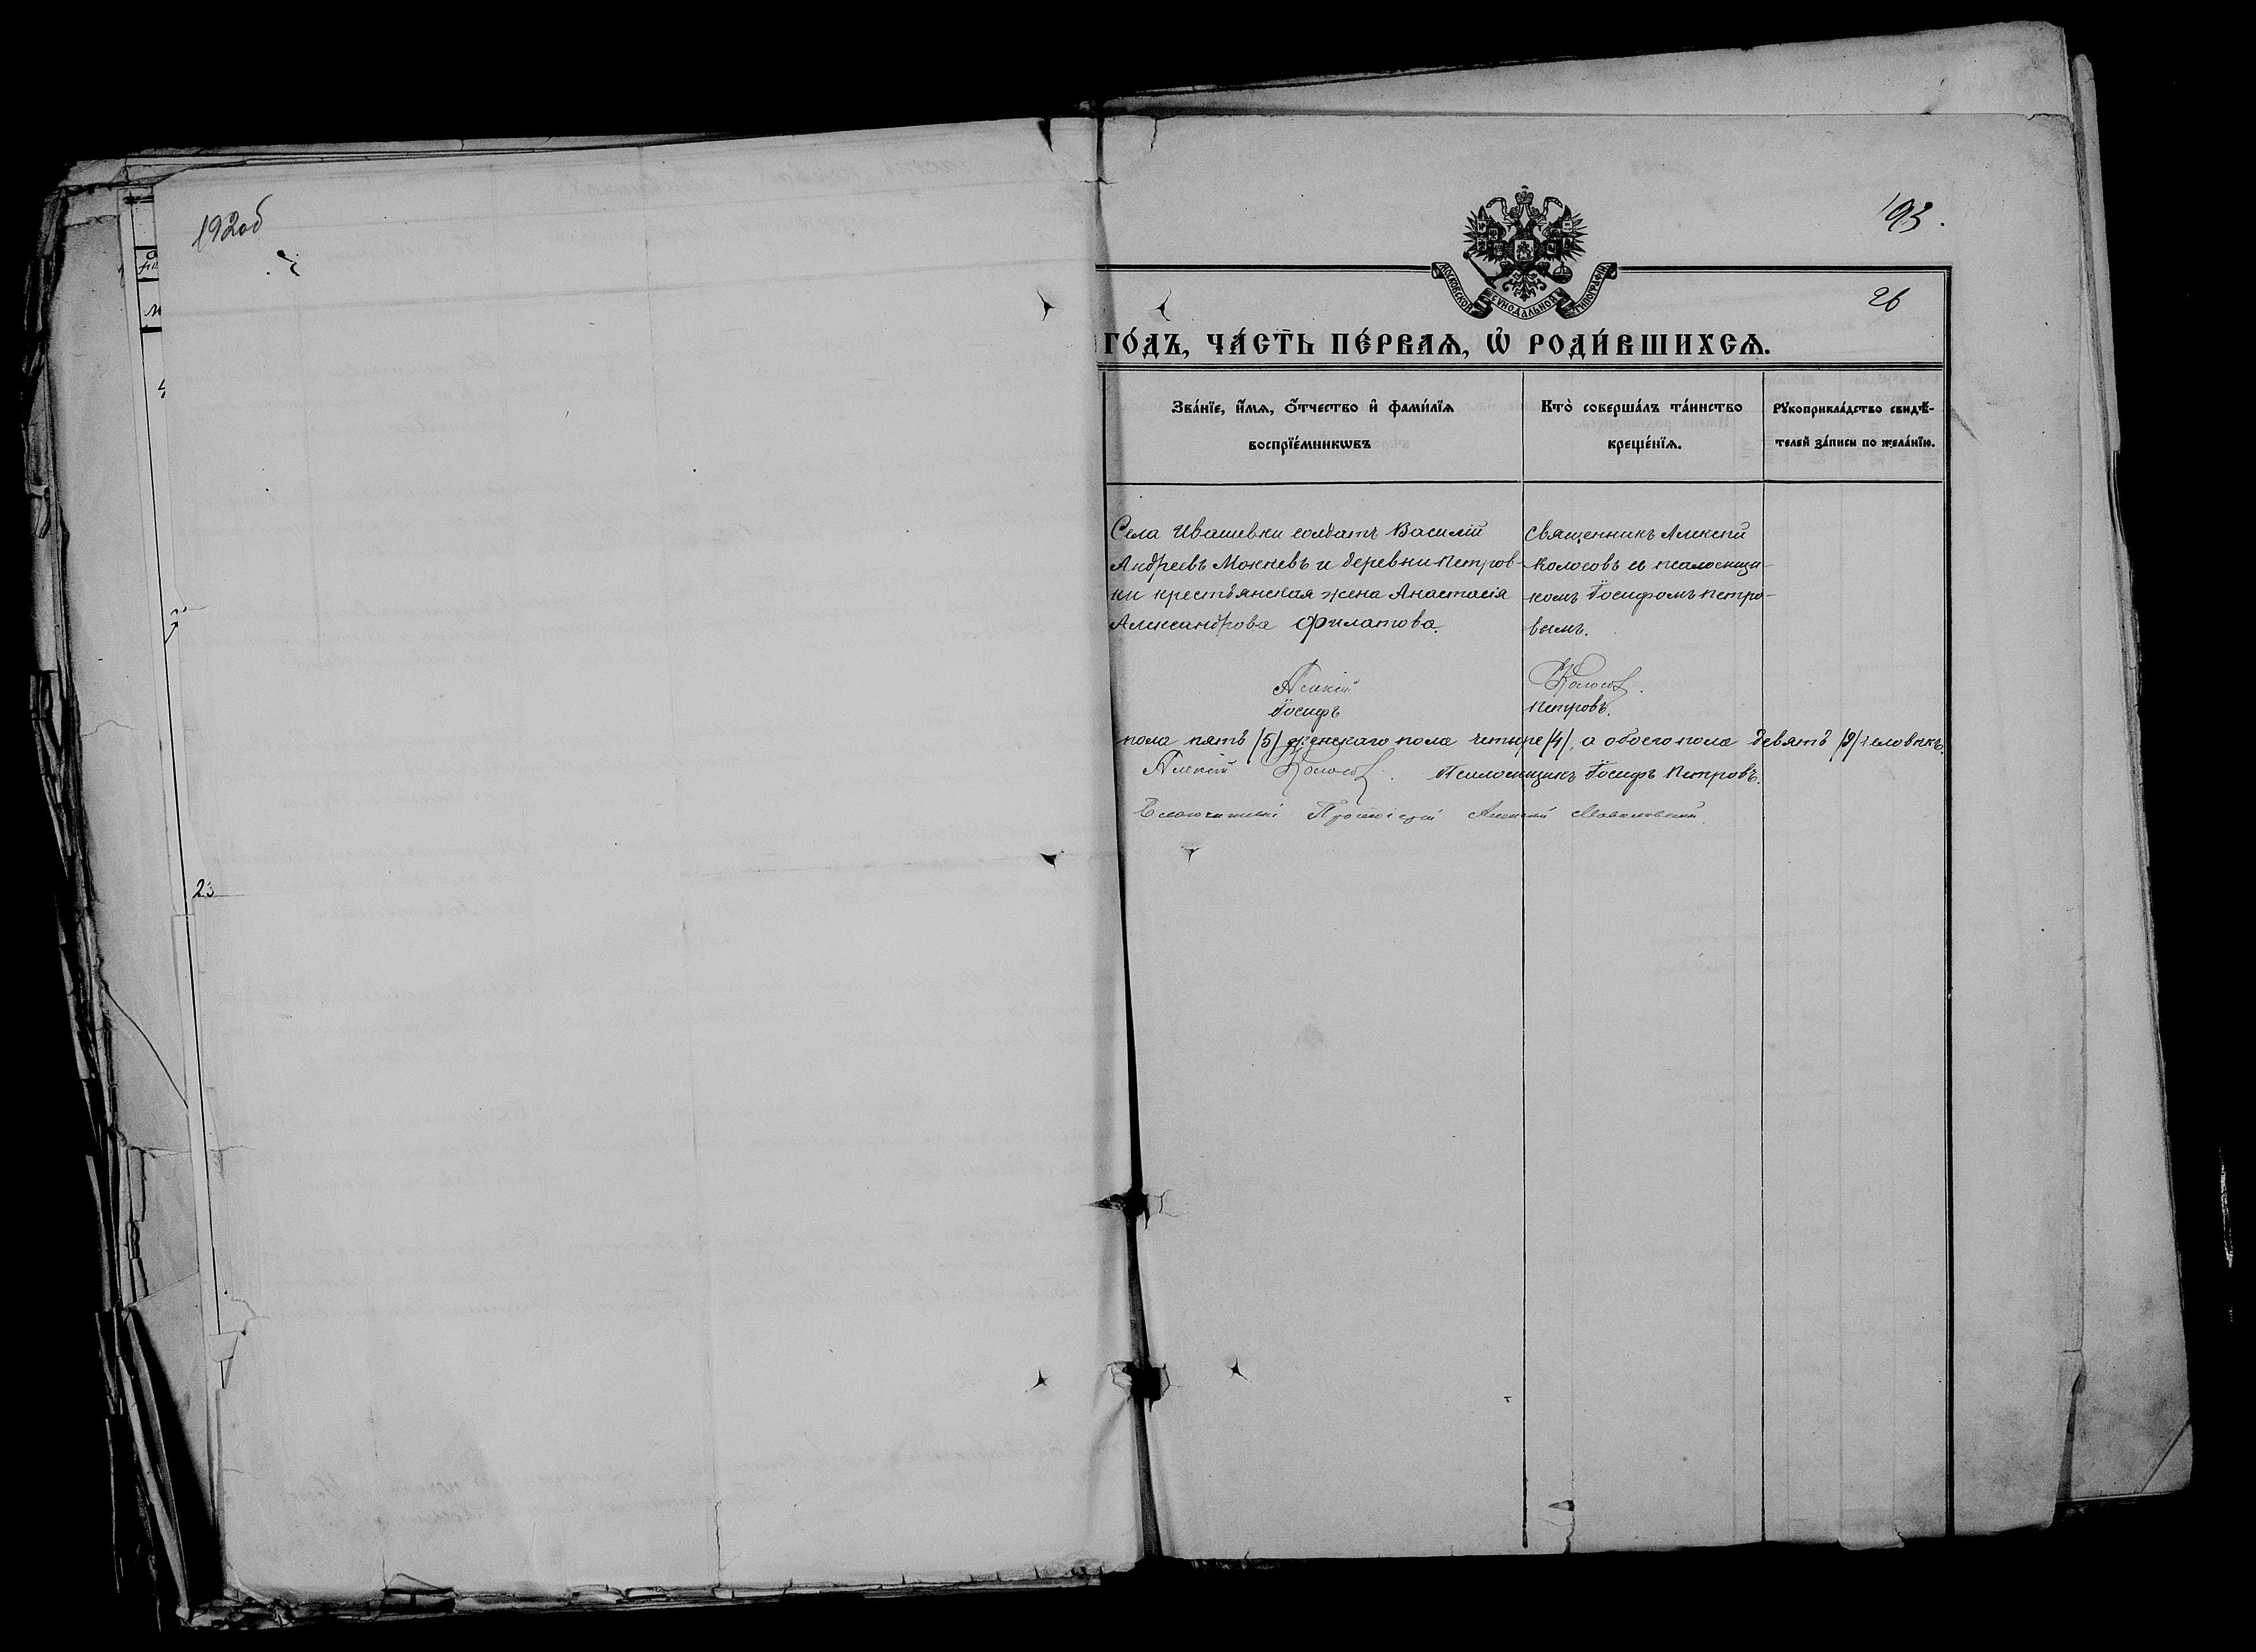 192об
23
193.
26
МОСКОВСКОЙ СѴНОДАЛЬНОЙ ТИПОГРАФІИ
ГО́ДЪ, ЧА́СТЬ ПЕ́РВАѦ, Ѡ҆ РОДИ́ВШИХСѦ.
Зва́нїе, и҆́мѧ, ѻ҆́тчество и҆ фами́лїѧ
воспрїе́мникѡвъ
Кто̀ соверша́лъ та́инство
креще́нїѧ.
Рꙋкоприкла́дство свидѣ́-
телей за́писи по жела́нїю.
Села Ивашевки солдатъ Василій
Андреевъ Мокневъ и деревни Петров-
ки крестьянская жена Анастасія
Александрова Филатова.
Священникъ Алексій
Колосовъ съ псаломщи-
комъ Іосифомъ Петро-
вымъ.
Алексій Колосовъ.
Іосифъ Петровъ.
пола пять /5/ женскаго пола четыре /4/, а обоего пола девять /9/ человѣкъ.
Алексій Колосовъ. Псаломщикъ Іосифъ Петровъ.
Протоіерей Алексій